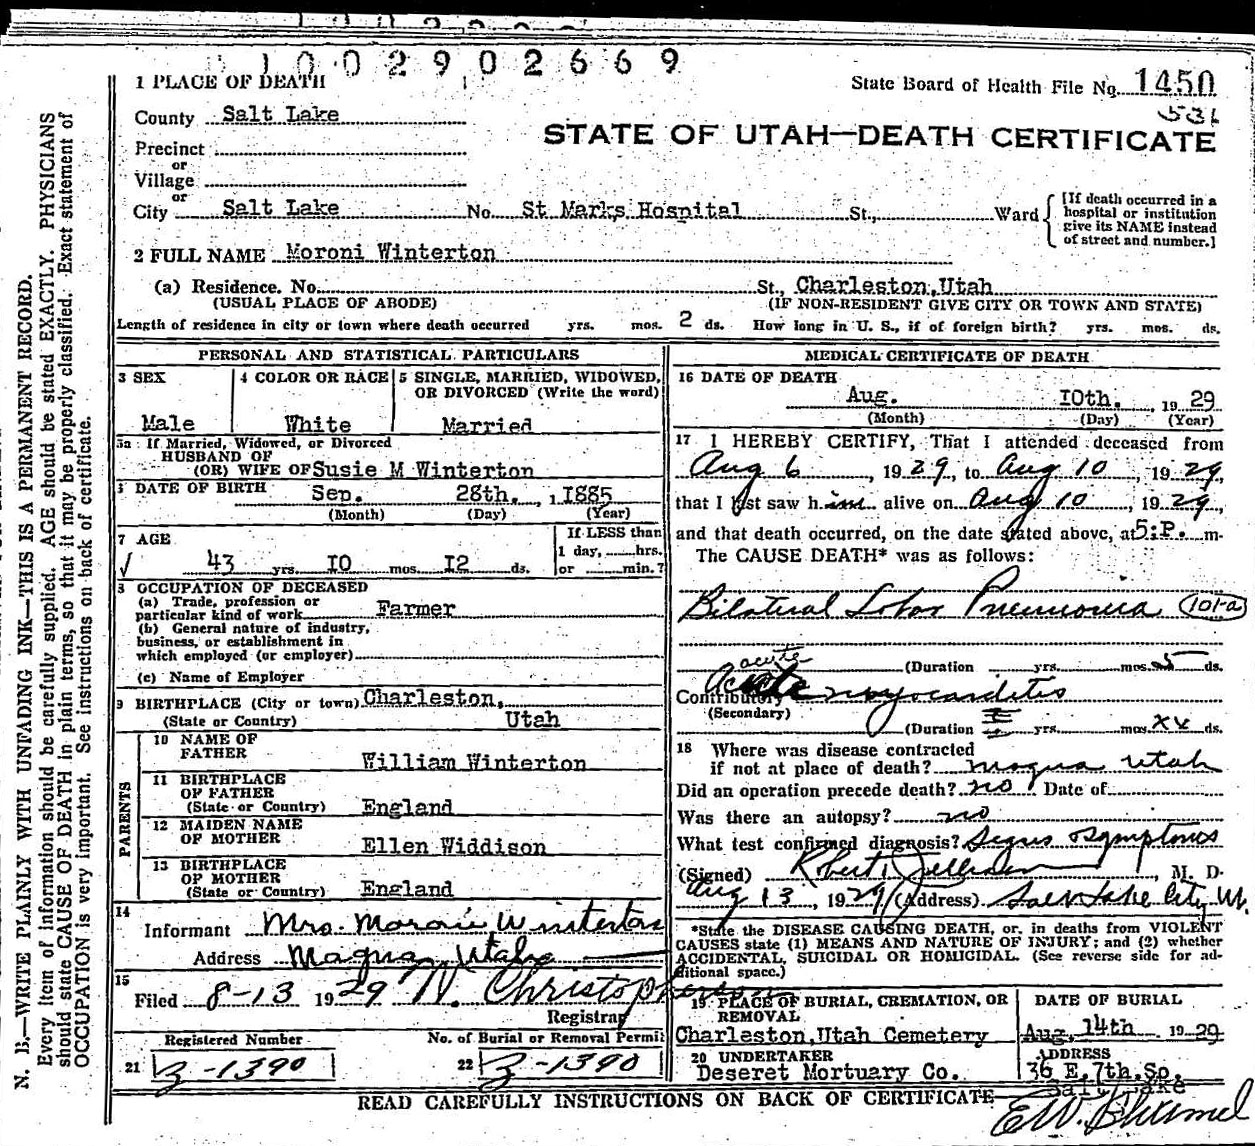 1 0 0 2 9 0 2 6 6 9
1 PLACE OF DEATH
State Board of Health File No. 1450
531
County Salt Lake
STATE OF UTAH—DEATH CERTIFICATE
Precinct
or
Village
or
City Salt Lake No. St Marks Hospital St., Ward
[If death occurred in a
hospital or institution
give its NAME instead
of street and number.]
2 FULL NAME Moroni Winterton
(a) Residence. No. St., Charleston, Utah
(USUAL PLACE OF ABODE) (IF NON-RESIDENT GIVE CITY OR TOWN AND STATE)
Length of residence in city or town where death occurred yrs. mos. 2 ds. How long in U. S., if of foreign birth? yrs. mos. ds.
PERSONAL AND STATISTICAL PARTICULARS
3 SEX
Male
4 COLOR OR RACE
White
5 SINGLE, MARRIED, WIDOWED,
OR DIVORCED (Write the word)
Married
5a If Married, Widowed, or Divorced
HUSBAND OF
(OR) WIFE OF Susie M Winterton
DATE OF BIRTH Sep. 28th. 1885
(Month) (Day) (Year)
7 AGE
43 yrs. IO mos. I2 ds.
If LESS than
1 day, hrs.
or min.?
8 OCCUPATION OF DECEASED
(a) Trade, profession or
particular kind of work Farmer
(b) General nature of industry,
business, or establishment in
which employed (or employer)
(c) Name of Employer
9 BIRTHPLACE (City or town) Charleston,
(State or Country) Utah
PARENTS
10 NAME OF
FATHER William Winterton
11 BIRTHPLACE
OF FATHER
(State or Country) England
12 MAIDEN NAME
OF MOTHER Ellen Widdison
13 BIRTHPLACE
OF MOTHER
(State or Country) England
14
Informant Mrs. Moroni Winterton
Address Magna, Utah
15
Filed 8-13 1929 N. Christopherson
Registrar
Registered Number
21 3-1390
No. of Burial or Removal Permit
22 3-1390
MEDICAL CERTIFICATE OF DEATH
16 DATE OF DEATH
Aug. IOth. 19 29
(Month) (Day) (Year)
17 I HEREBY CERTIFY, That I attended deceased from
Aug 6, 1929, to Aug 10, 1929,
that I last saw him alive on Aug 10, 1929,
and that death occurred, on the date stated above, at 5:P. m.
The CAUSE DEATH* was as follows:
Bilateral Lobar Pneumonia 101-a
(Duration yrs. mos. 5 ds.
acute
Contributory myocarditis
(Secondary)
(Duration yrs. mos. ds.
18 Where was disease contracted
if not at place of death? Magna Utah
Did an operation precede death? no Date of
Was there an autopsy? no
What test confirmed diagnosis? Signs & symptoms
(Signed) Robert, M. D.
Aug 13, 1929 (Address) Salt Lake City Ut.
*State the DISEASE CAUSING DEATH, or, in deaths from VIOLENT
CAUSES state (1) MEANS AND NATURE OF INJURY; and (2) whether
ACCIDENTAL, SUICIDAL OR HOMICIDAL. (See reverse side for ad-
ditional space.)
19 PLACE OF BURIAL, CREMATION, OR
REMOVAL
Charleston, Utah Cemetery
DATE OF BURIAL
Aug. 14th 19 29
20 UNDERTAKER
Deseret Mortuary Co.
ADDRESS
36 E. 7th. So.
Salt Lake
READ CAREFULLY INSTRUCTIONS ON BACK OF CERTIFICATE
E.W.
N. B.—WRITE PLAINLY WITH UNFADING INK—THIS IS A PERMANENT RECORD.
Every item of information should be carefully supplied. AGE should be stated EXACTLY. PHYSICIANS
should state CAUSE OF DEATH in plain terms, so that it may be properly classified. Exact statement of
OCCUPATION is very important. See instructions on back of certificate.